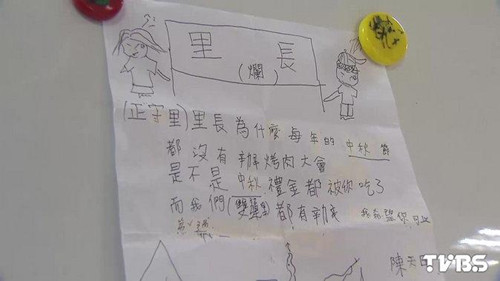 里長
(爛)
(正守里)里長為什麼每年的中秋節
都沒有辦烤肉大會
是不是中秋禮金都被你吃了
而我們(雙蓮里)都有
陳
TVBS